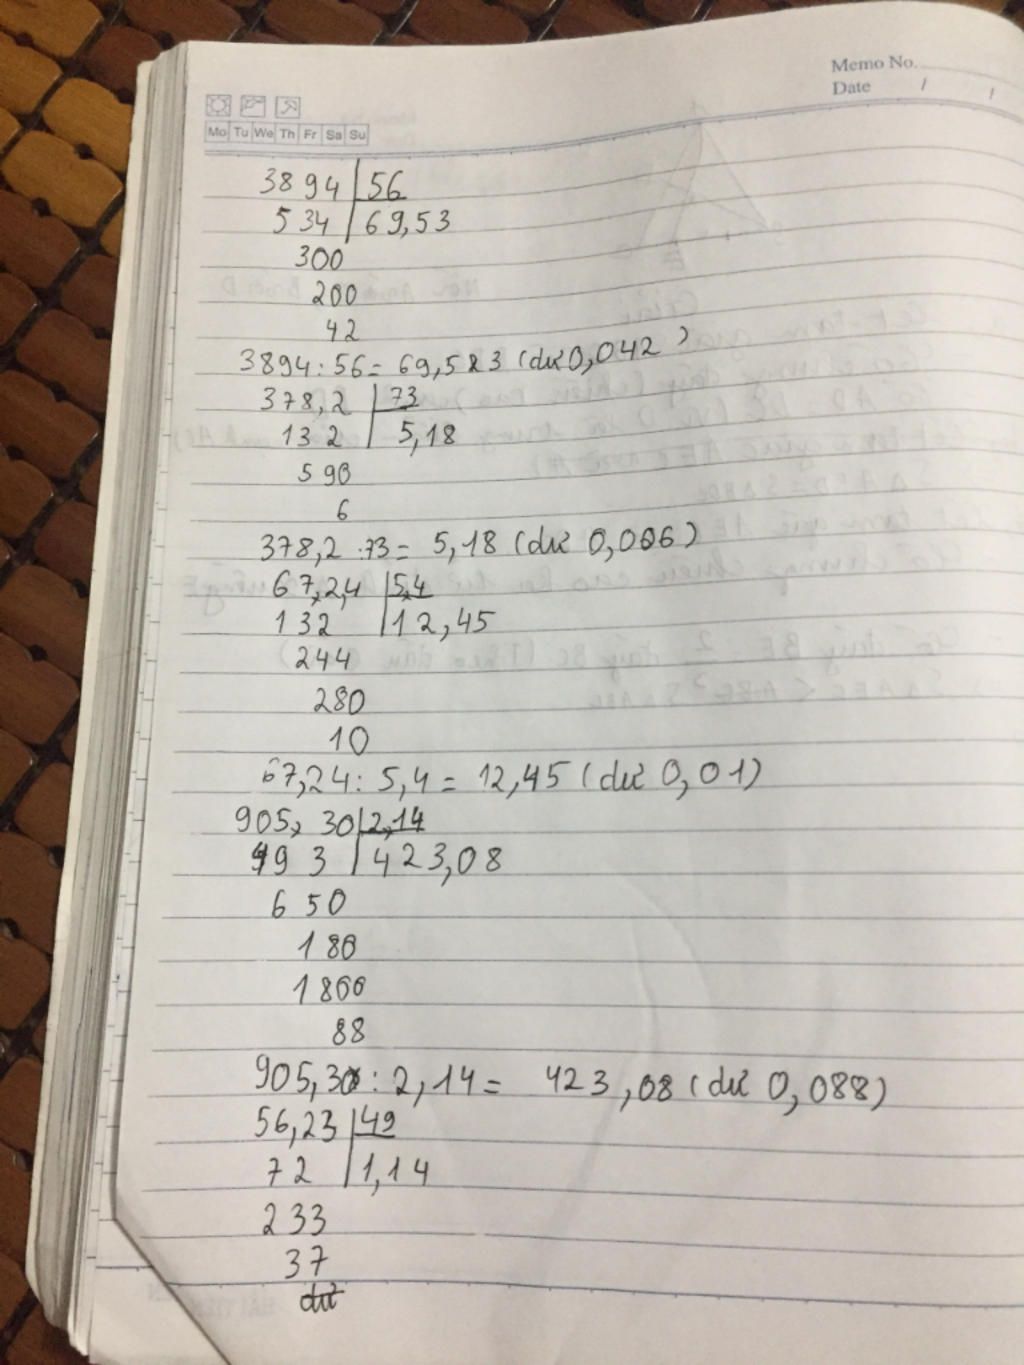 Memo No.
Date / /
Mo Tu We Th Fr Sa Su
3894 56
534 69,53
300
200
42
3894 : 56 = 69,523 (dư 0,042)
378,2 73
132 5,18
590
6
378,2 : 73 = 5,18 (dư 0,006)
67,2,4 5,4
132 12,45
244
280
10
67,24 : 5,4 = 12,45 (dư 0,01)
905, 30 2,14
493 423,08
650
180
1800
88
905,30 : 2,14 = 423,08 (dư 0,088)
56,23 49
72 1,14
233
37
dư